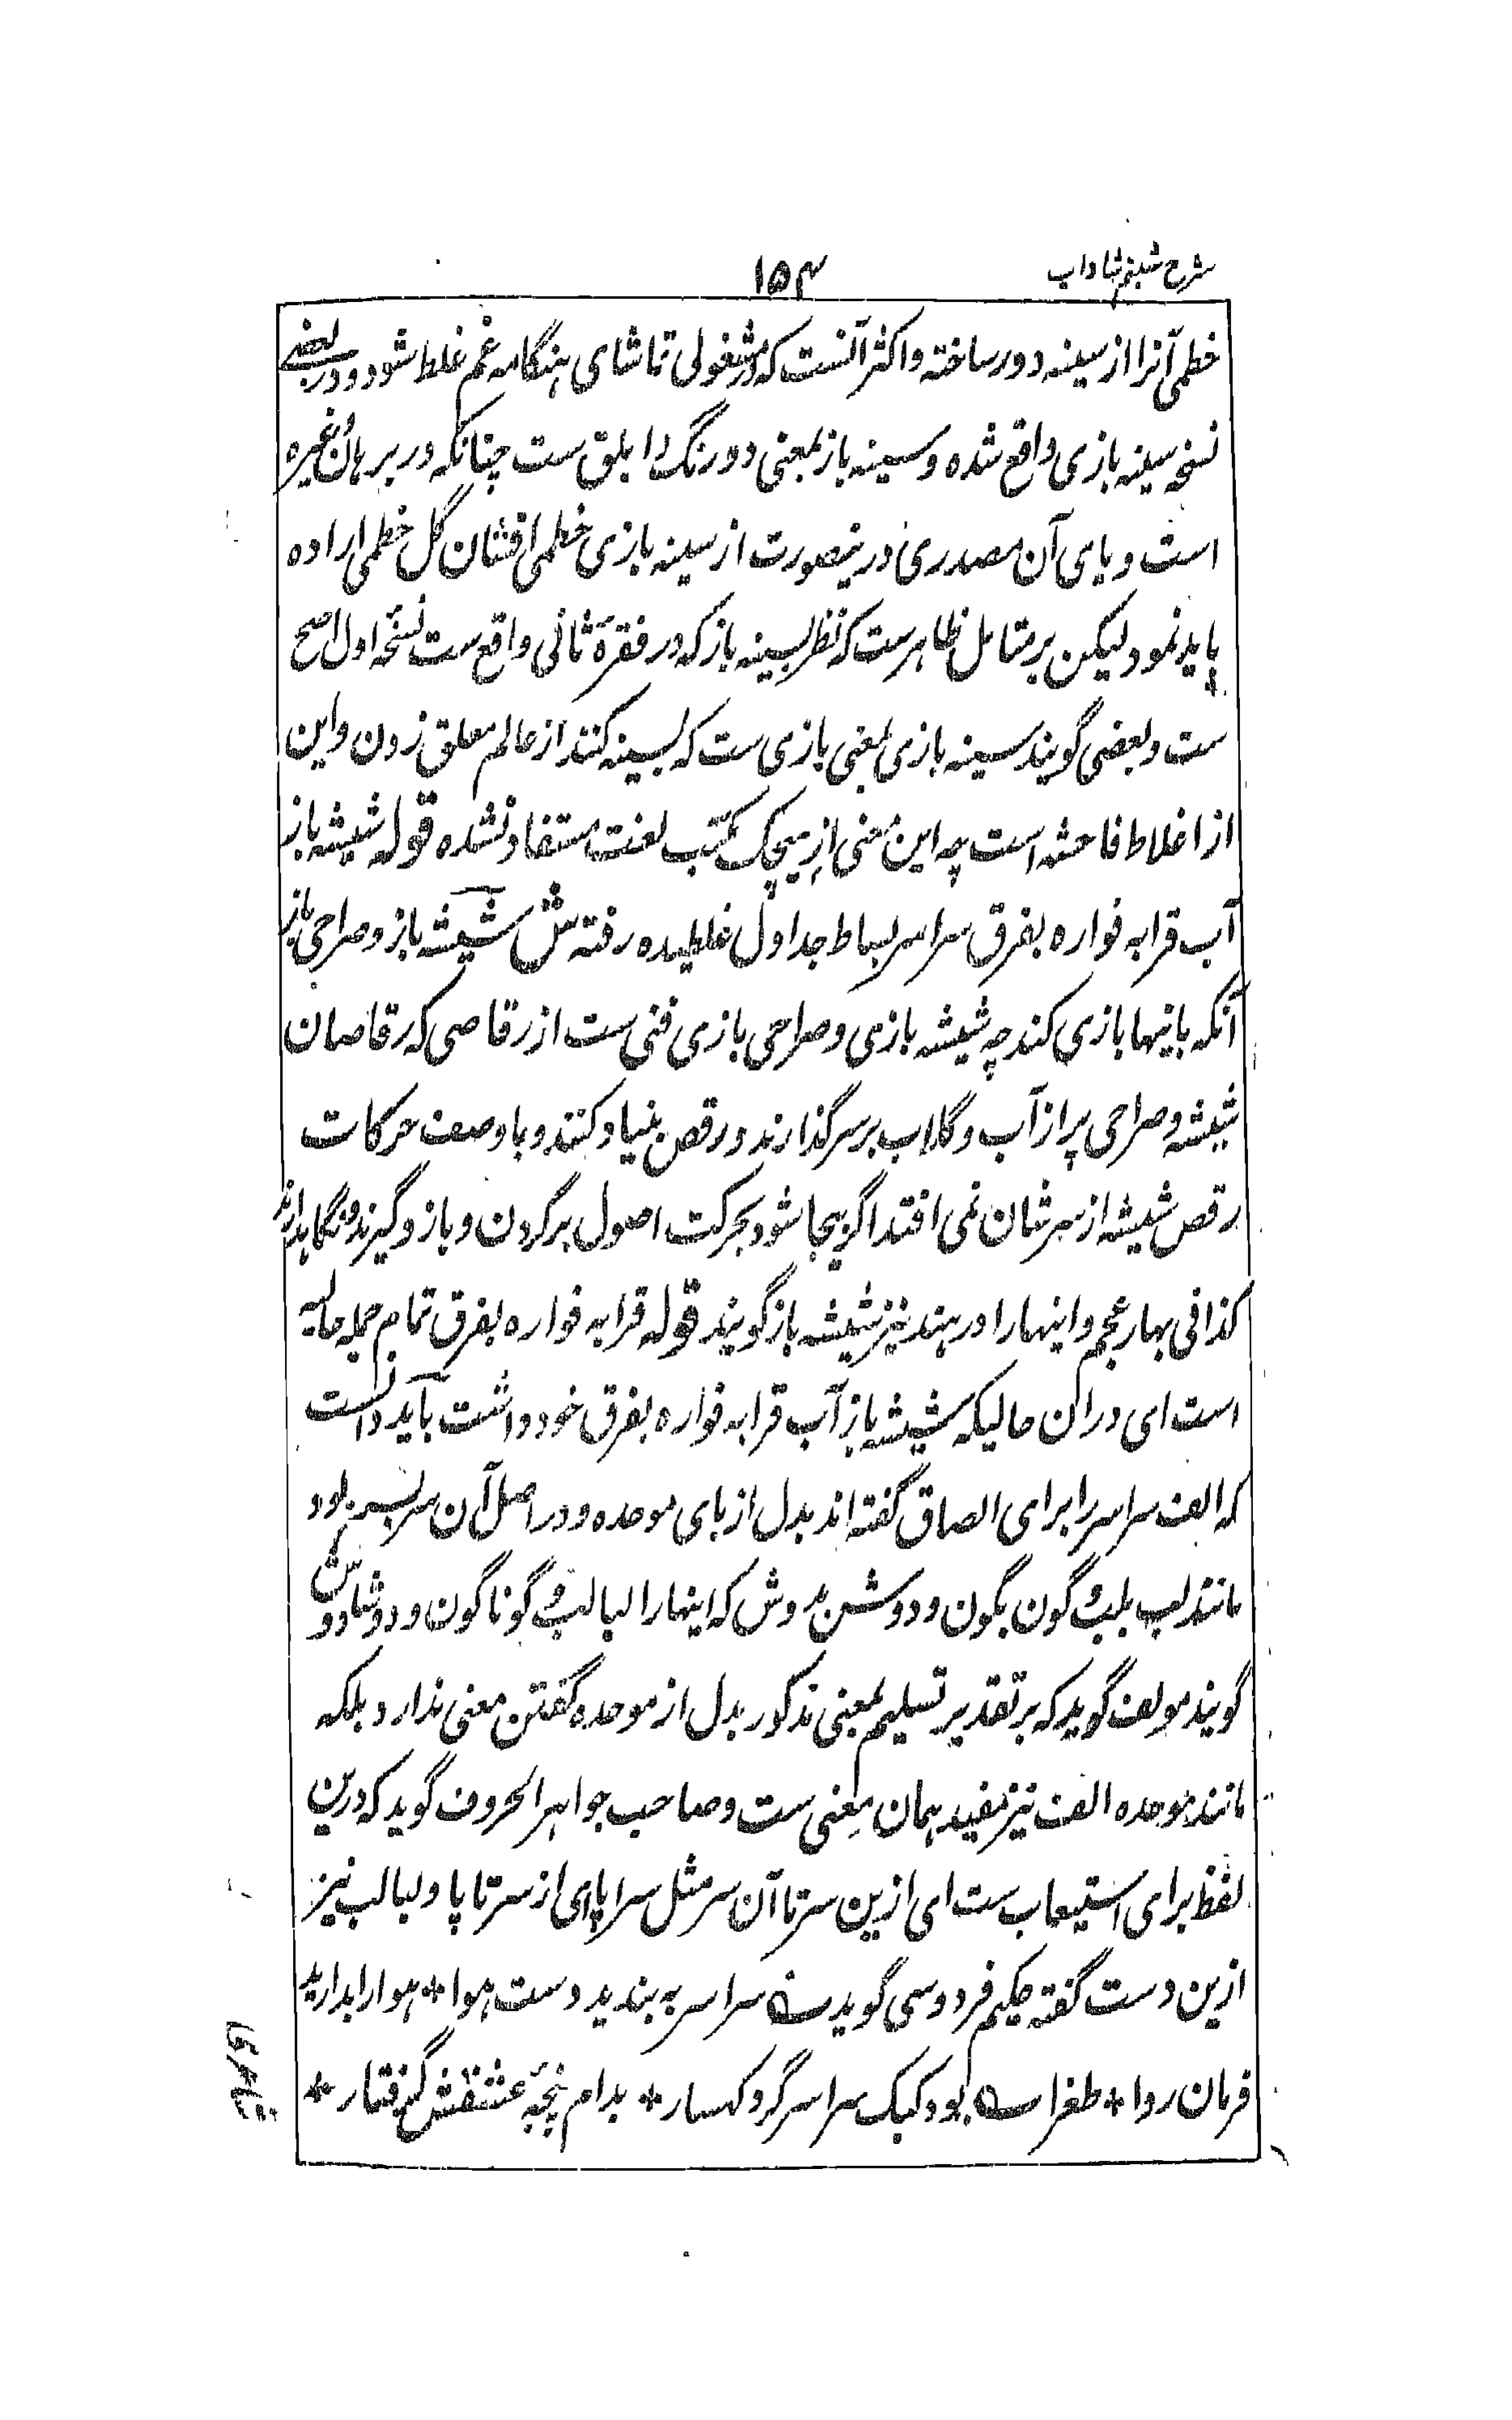 شرح شبنم شاداب
۱۵۴
خطمی آنرا از سینه دور ساخته و اکثر آنست که در مشغولی تماشای هنگامه غم غلط شود و در بعضے
نسخه سینه بازی واقع شده و سینه باز بمعنی دو رنگ و ابلق ست چنانکه در برهان وغیره
است و یای آن مصدری درینصورت از سینه بازی خطمی افشان گل خطمی اراده
باید نمود لیکن بر متامل ظاهرست که نظر بسینه باز که در فقرهٔ ثانی واقع ست نسخهٔ اول اصح
ست و بعضی گویند سینه بازی بمعنی بازی ست که بسینه کنند از عالم معلق زدن و این
از اغلاط فاحشه است چه این معنی از هیچیک کتب لغت مستفاد نشده قوله شیشه باز
آب قرابه فواره بفرق سراسر بساط جداول غلطیده رفته ش شیشه باز و صراحی باز
آنکه باینها بازی کند چه شیشه بازی و صراحی بازی فنی ست از رقاصی که رقاصان
شیشه و صراحی پر از آب و گلاب بر سر گذارند و رقص بنیاد کنند و با وصف حرکات
رقص شیشه از سرشان نمی افتد اگر بیجا شود بحرکت اصول بر گردن و بازو گیرند و نگاهدارند
کذا فی بهار عجم و اینها را در هند نیز شیشه باز گویند قوله قرابه فواره بفرق تمام جمله حالیه
است ای دران حالیکه شیشه باز آب قرابه فواره بفرق خود داشت باید دانست
که الف سراسر را برای الصاق گفته اند بدل از بای موحده و در اصل آن سر بسر بود
مانند لب بلب و گون بگون و دوش بدوش که اینها را لبالب و گوناگون و دوشادوش
گویند مولف گوید که بر تقدیر تسلیم بمعنی مذکور بدل از موحده گفتن معنی ندارد بلکه
مانند موحده الف نیز مفید همان معنی ست و صاحب جواهر الحروف گوید که درین
لفظ برای استیعاب ست ای ازین سر تا آن سر مثل سراپا ای از سر تا پا و لبالب نیز
ازین دست گفته حکیم فردوسی گوید ؎ سراسر به بندید دست هوا * هوا را بدارید
فرمان روا * طغرا ؎ بود کبک سراسر گرد کهسار * بدام پنجهٔ عشقش گرفتار *